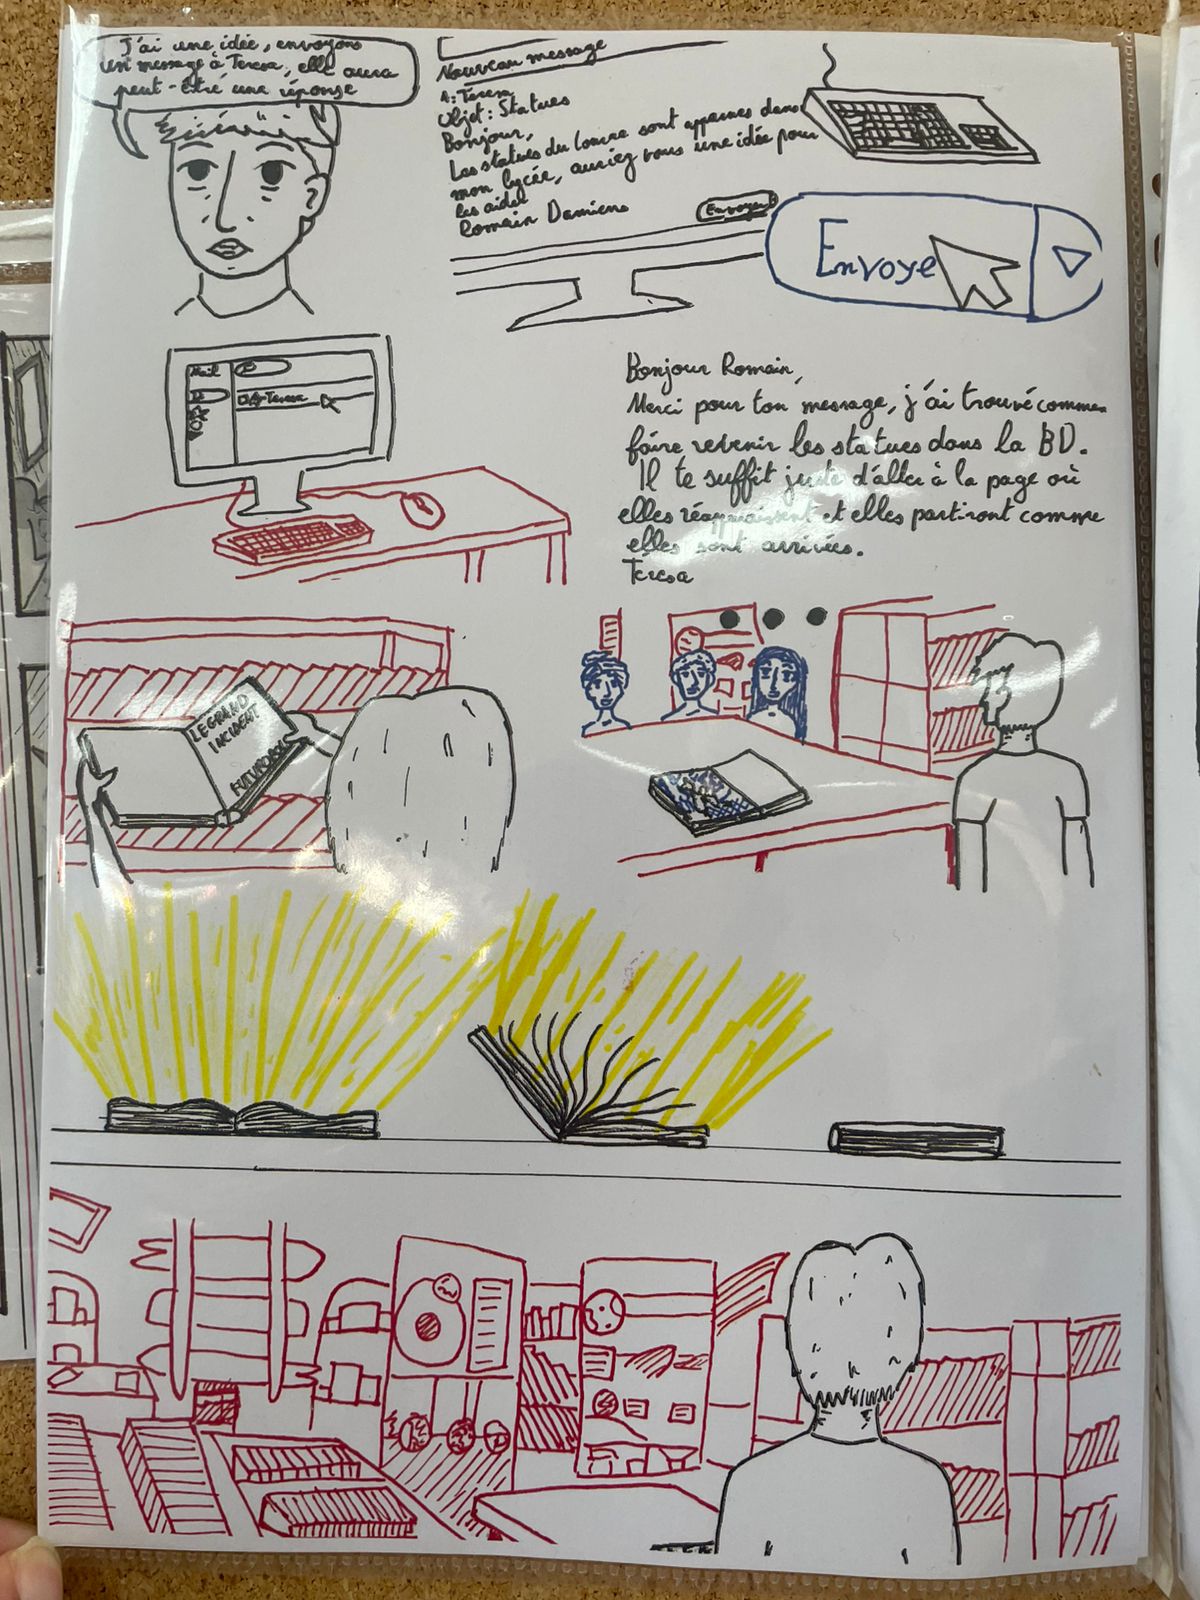 J'ai une idée, envoyons
un message à Teresa, elle aura
peut-être une réponse
Nouveau message
A: Teresa
Objet: Statues
Bonjour,
Les statues du Louvre sont apparues dans
mon lycée, auriez vous une idée pour
les aider
Romain Damiens
Envoyer
Envoye
Mail
Teresa
Bonjour Romain,
Merci pour ton message, j'ai trouvé commen
faire revenir les statues dans la BD.
Il te suffit juste d'aller à la page où
elles réapparaissent et elles partiront comme
elles sont arrivées.
Teresa
LE GRAND
INCIDENT
FUTUROPOLIS